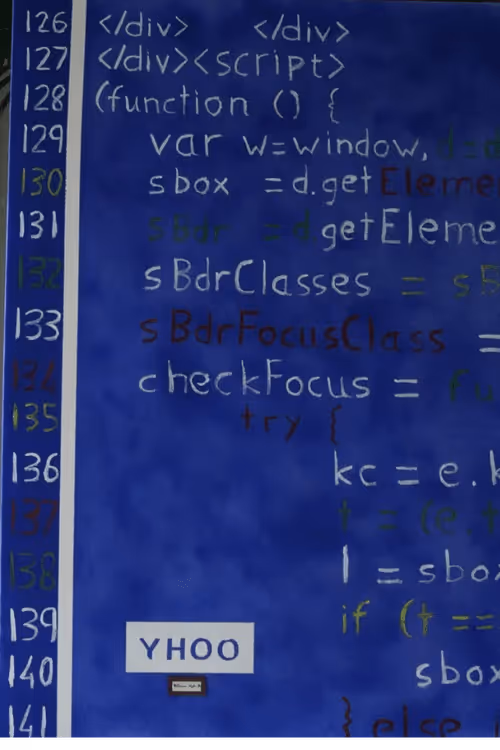 126 </div> </div>
127 </div><script>
128 (function () {
129 var w=window, d=d
130 sbox =d.getEleme
131 sBdr = d.getEleme
132 sBdrClasses = sB
133 sBdrFocusClass =
134 checkFocus = fu
135 try {
136 kc = e.k
137 t = (e.t
138 l = sbox
139 if (t ==
140 sbox
141 } else
YHOO